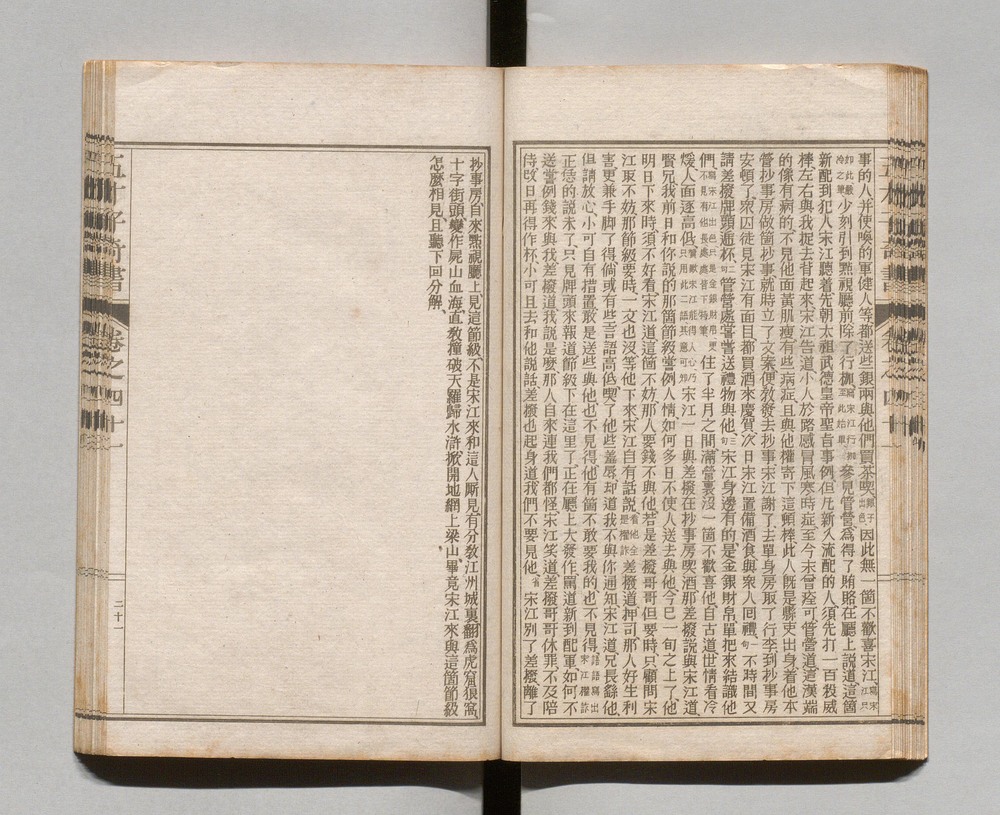 事的人并使喚的軍健人等都送些銀兩與他們買茶喫因此無一箇不歡喜宋江寫宋江只
如此嚴冷之筆少刻引到點視廳前除了行枷寫宋江行枷至此始畢參見管營為得了賄賂在廳上說道這箇
新配到犯人宋江聽着先朝太祖武德皇帝聖旨事例但凡新入流配的人須先打一百殺威
棒左右與我捉去背起來宋江告道小人於路感冒風寒時症至今未曾痊可管營道這漢端
的像有病的不見他面黃肌瘦有些病症且與他權寄下這頓棒此人既是縣吏出身着他本
營抄事房做箇抄事就時立了文案便教發去抄事宋江謝了去單身房取了行李到抄事房
安頓了眾囚徒見宋江有面目都買酒來慶賀次日宋江置備酒食與眾人回禮句一不時間又
請差撥牌頭遞杯句二管營處常常送禮物與他句三宋江身邊有的是金銀財帛單把來結識他
們住了半月之間滿營裏沒一箇不歡喜他自古道世情看冷
煖人面逐高低宋江一日與差撥在抄事房喫酒那差撥說與宋江道
賢兄我前日和你說的那箇節級常例人情如何多日不使人送去與他今已一旬之上了他
明日下來時須不好看宋江道這箇不妨那人要錢不與他若是差撥哥哥但要時只顧問宋
江取不妨那節級要時一文也沒等他下來宋江自有話說看他全是權詐差撥道押司那人好生利
害更兼手脚了得倘或有些言語高低喫了他些羞辱却道我不與你通知宋江道兄長繇他
但請放心小可自有措置敢是送些與他也不見得他有箇不敢要我的也不見得語語寫出宋江權詐
正恁的說未了只見牌頭來報道節級下在這里了正在廳上大發作罵道新到配軍如何不
送常例錢來與我差撥道我說是麼那人自來連我們都怪宋江笑道差撥哥哥休罪不及陪
侍改日再得作杯小可且去和他說話差撥也起身道我們不要見他省宋江別了差撥離了
抄事房自來點視廳上見這節級不是宋江來和這人厮見有分教江州城裏翻為虎窟狼窩
十字街頭變作屍山血海直教撞破天羅歸水滸掀開地網上梁山畢竟宋江來與這箇節級
怎麼相見且聽下回分解
五才子奇書
卷之四十一
二十一